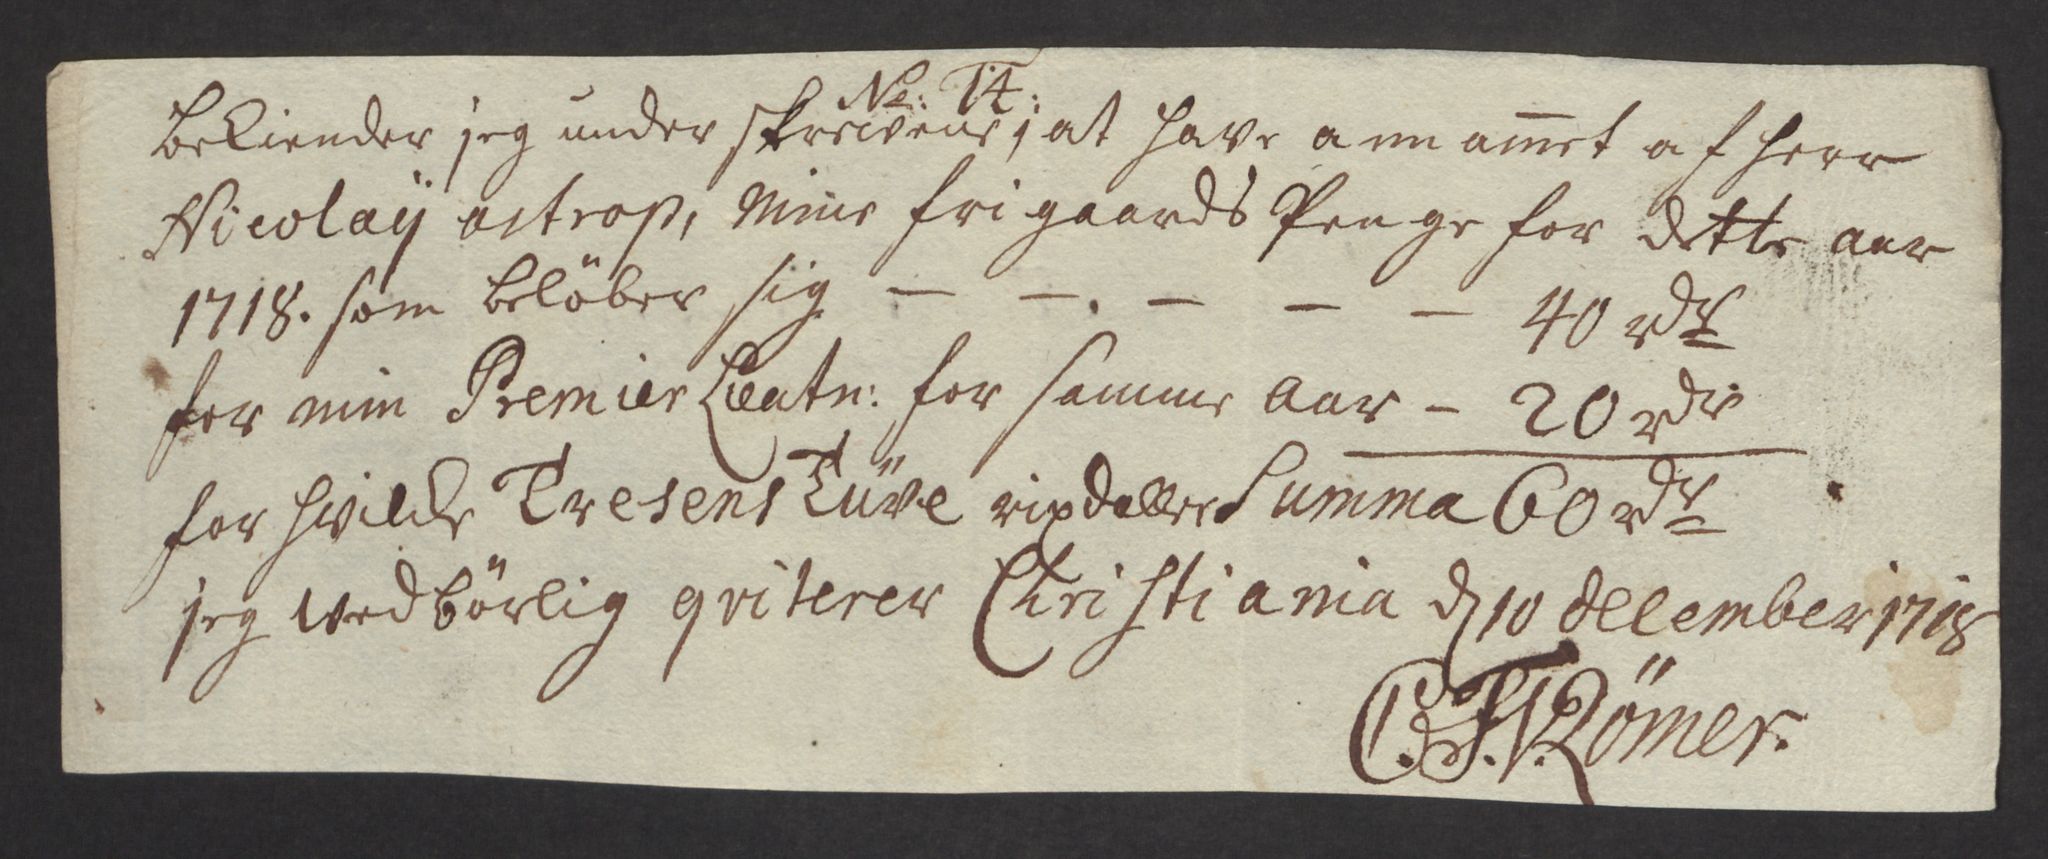 No: 14:
Bekiender jeg under skrevene, at have annammet af herr
Nicolaÿ astrop, mine frigaards Penge for dette aar
1718. som belöber sig — — — — — 40 rdr
for min Premier Lieutn: for samme Aar – 20 rdr
for hvilcke Tresens Tüve rixdaller Summa 60 rdr
jeg vedbörlig qviterer Christiania d 10 december 1718
C. F. V. Römer.